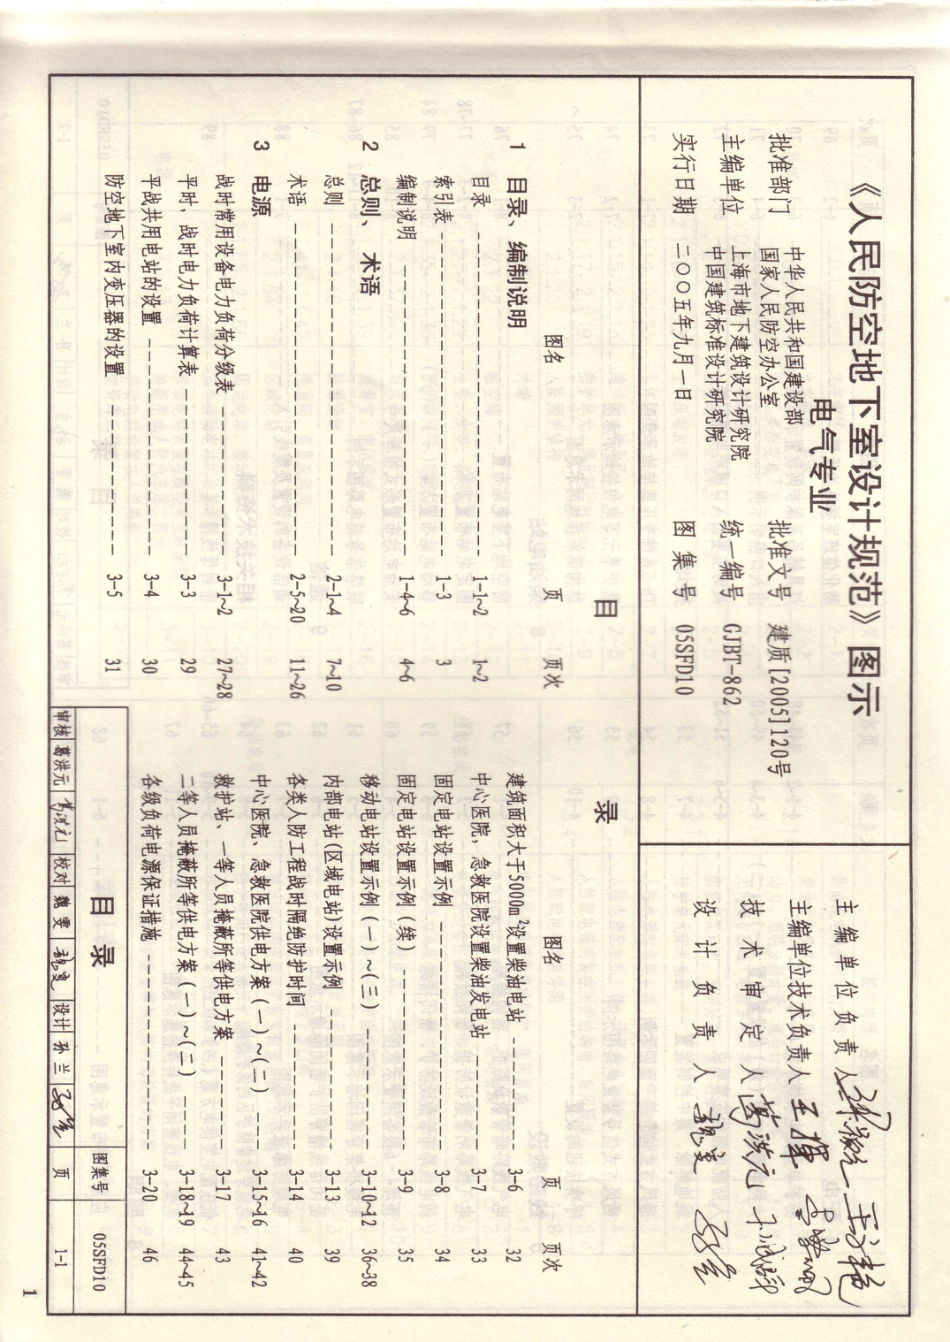 《人民防空地下室设计规范》图示
电气专业
批准部门 中华人民共和国建设部
国家人民防空办公室
批准文号 建质[2005]120号
主编单位 上海市地下建筑设计研究院
中国建筑标准设计研究院
统一编号 GJBT-862
实行日期 二〇〇五年九月一日
图集号 05SFD10
主编单位负责人
主编单位技术负责人 王挥
技术审定人 葛洪元
设计负责人 魏雯 孙兰
目 录
图名 页 页次
1 目录、编制说明
目录 1-1~2 1~2
索引表 1-3 3
编制说明 1-4~6 4~6
2 总则、术语
总则 2-1~4 7~10
术语 2-5~20 11~26
3 电源
战时常用设备电力负荷分级表 3-1~2 27~28
平时，战时电力负荷计算表 3-3 29
平战共用电站的设置 3-4 30
防空地下室内变压器的设置 3-5 31
图名 页 页次
建筑面积大于5000m²设置柴油电站 3-6 32
中心医院，急救医院设置柴油发电站 3-7 33
固定电站设置示例 3-8 34
固定电站设置示例(续) 3-9 35
移动电站设置示例(一)~(三) 3-10~12 36~38
内部电站(区域电站)设置示例 3-13 39
各类人防工程战时隔绝防护时间 3-14 40
中心医院、急救医院供电方案(一)~(二) 3-15~16 41~42
救护站、一等人员掩蔽所等供电方案 3-17 43
二等人员掩蔽所等供电方案(一)~(二) 3-18~19 44~45
各级负荷电源保证措施 3-20 46
目 录
图集号 05SFD10
审核 葛洪元 葛洪元 校对 魏雯 魏雯 设计 孙兰 孙兰 页 1-1
1